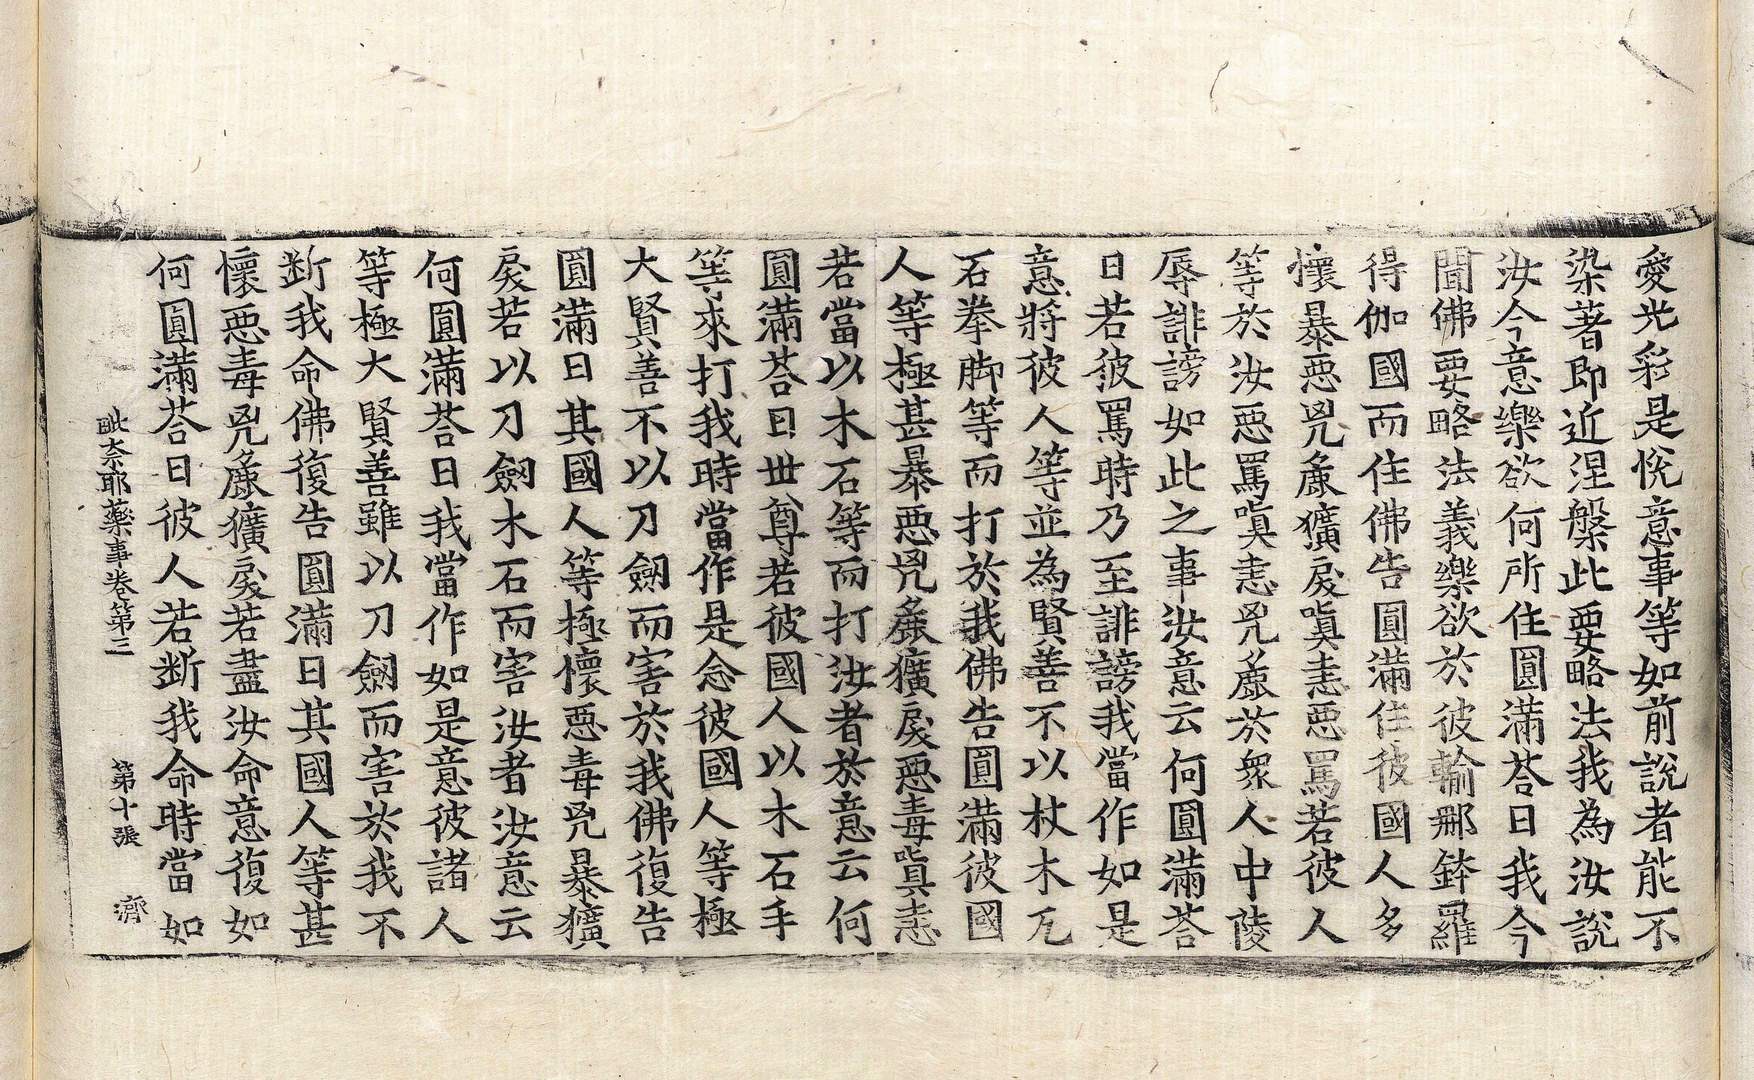 愛光彩是悅意事等如前說者能不
染著即近涅槃此要略法我為汝說
汝今意樂欲何所住圓滿荅曰我今
聞佛要略法義樂欲於彼輸那鉢羅
得伽國而住佛告圓滿住彼國人多
懷暴惡兇麁獷戾嗔恚惡罵若彼人
等於汝惡罵嗔恚兇麁於衆人中陵
辱誹謗如此之事汝意云何圓滿荅
曰若彼罵時乃至誹謗我當作如是
意將彼人等並為賢善不以杖木瓦
石拳脚等而打於我佛告圓滿彼國
人等極甚暴惡兇麁獷戾惡毒嗔恚
若當以木石等而打汝者於意云何
圓滿荅曰世尊若彼國人以木石手
等來打我時當作是念彼國人等極
大賢善不以刀劒而害於我佛復告
圓滿曰其國人等極懷惡毒兇暴獷
戾若以刀劒木石而害汝者汝意云
何圓滿荅曰我當作如是意彼諸人
等極大賢善雖以刀劒而害於我不
断我命佛復告圓滿曰其國人等甚
懷惡毒兇麁獷戾若盡汝命意復如
何圓滿荅曰彼人若断我命時當如
毗奈耶藥事卷第三 第十張 濟